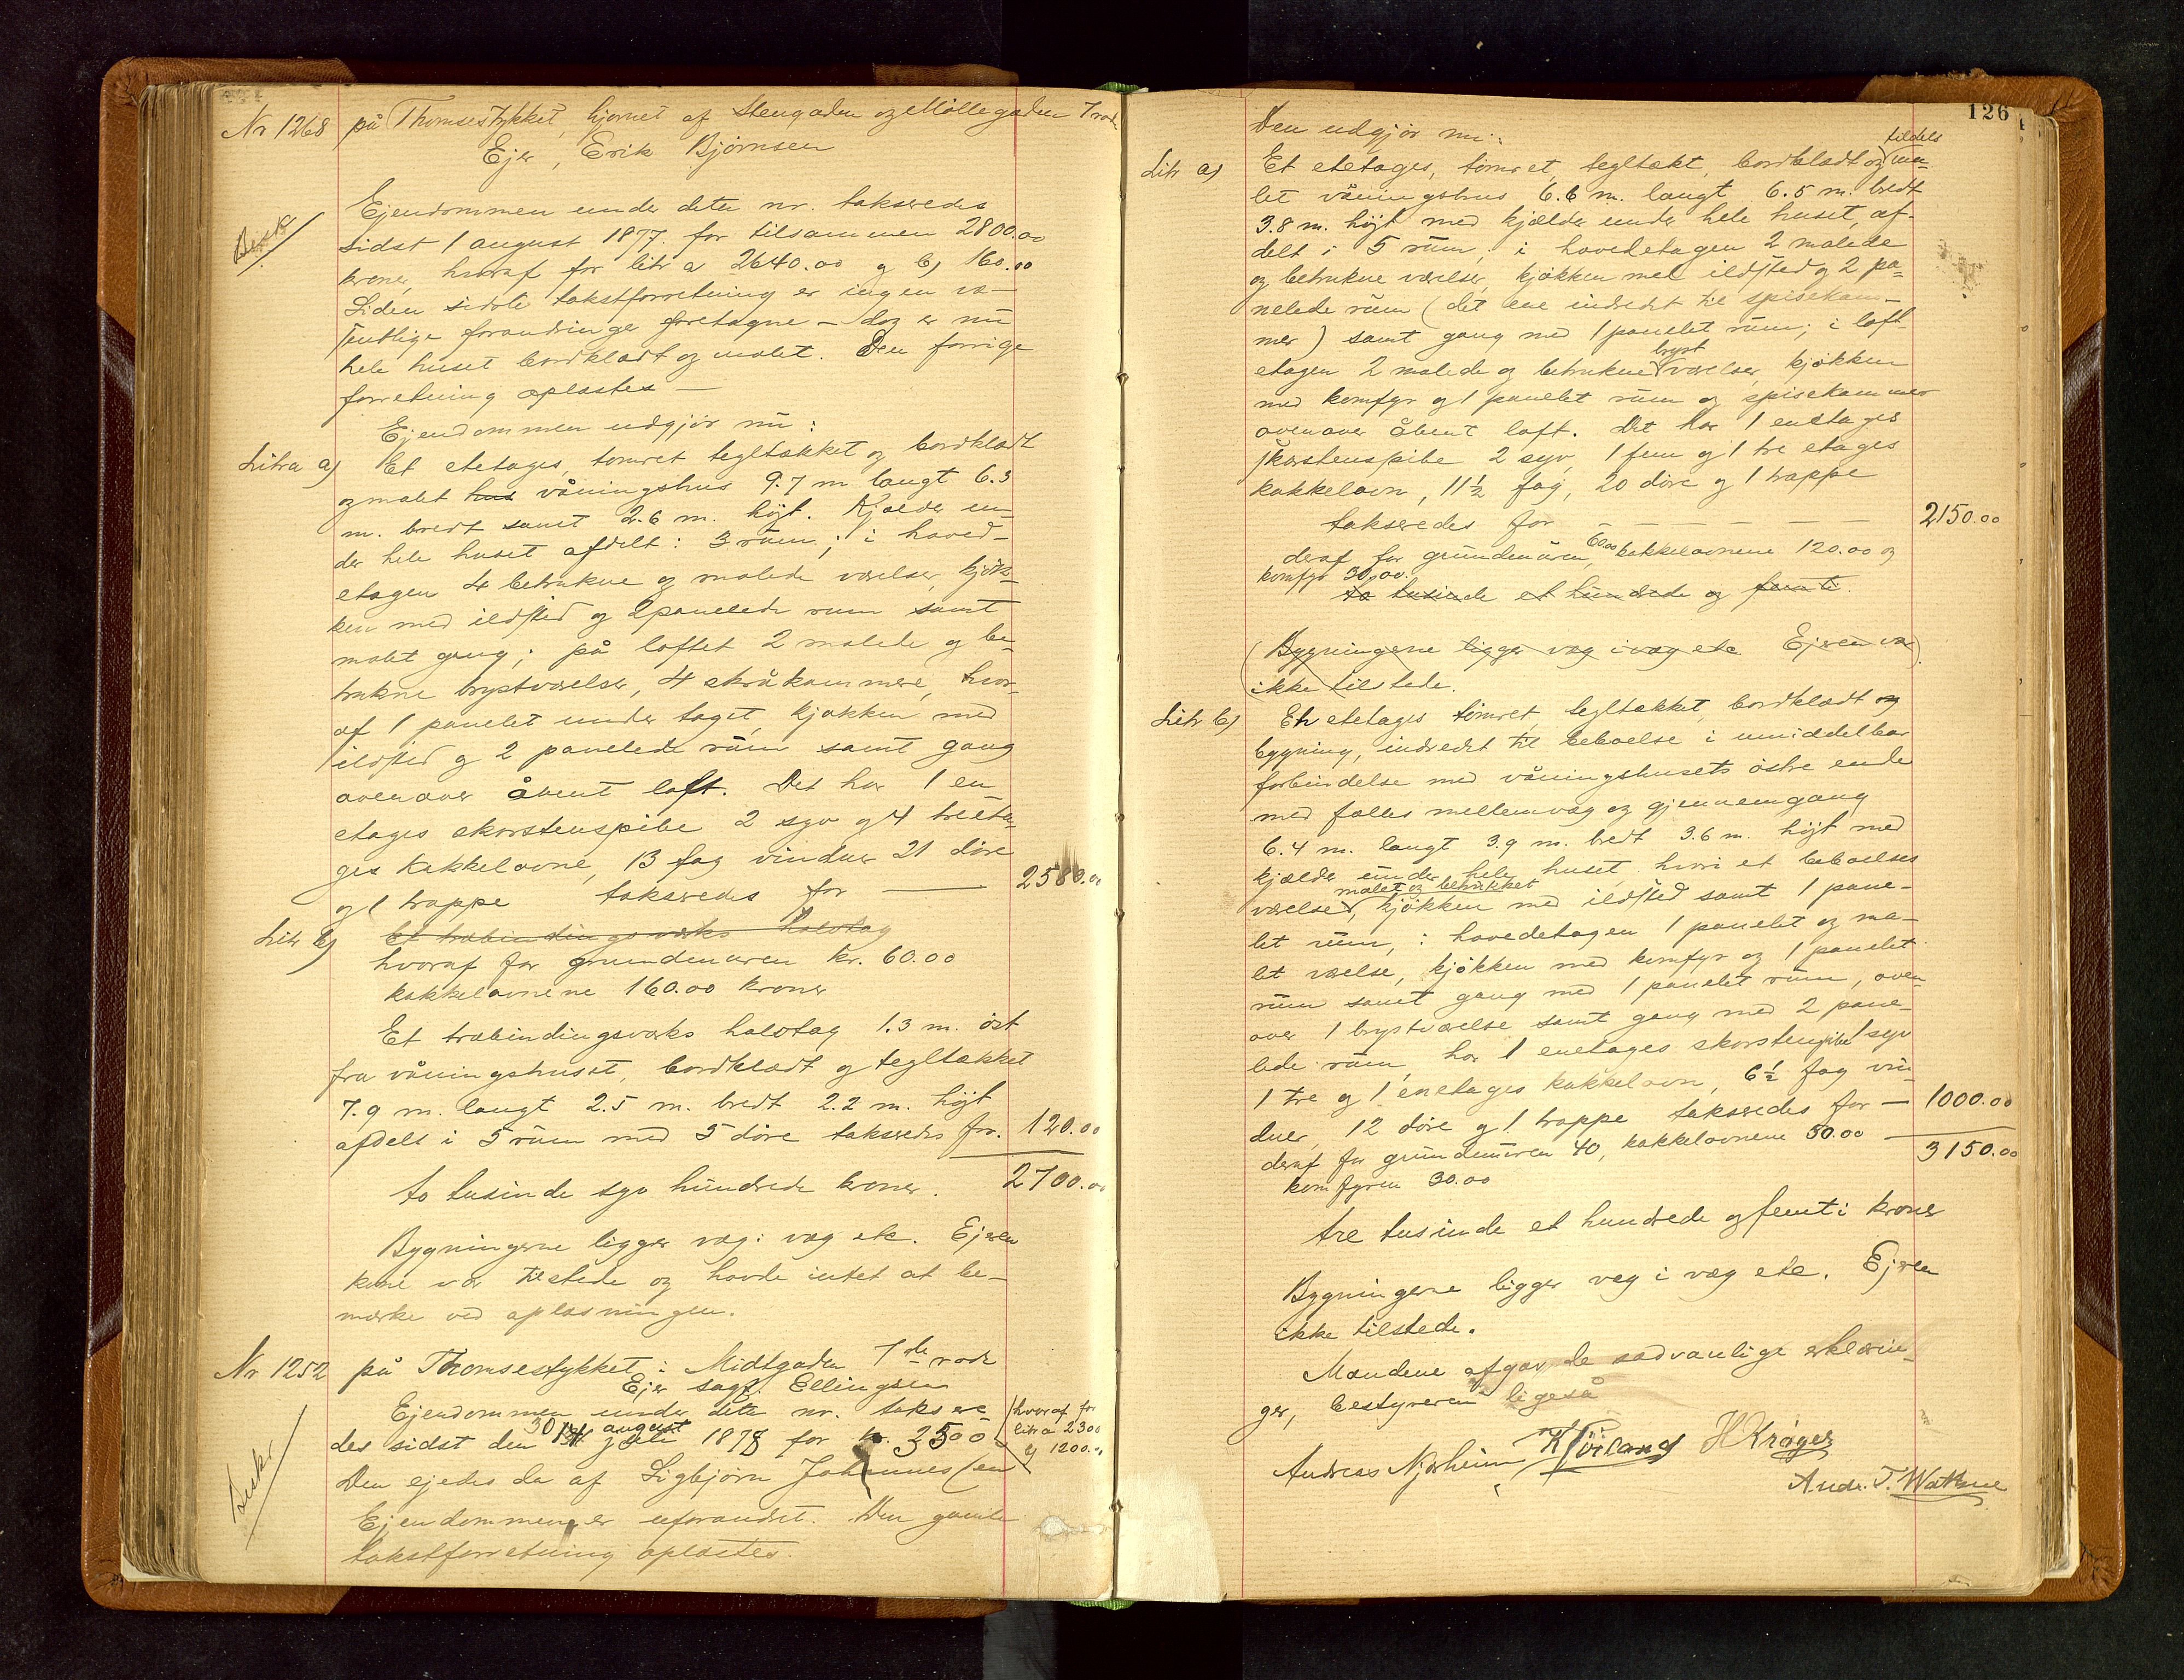 Nr 1268 på Thomsestykket, hjørnet af Stengaden og Møllegaden 7 rode
Ejer, Erik Bjørnsen
Ejendommen under dette nr. takseredes
Besk
sidst 1 august 1877 for tilsammen 2800.00
kroner, hvoraf for litr a 2640.00 og b) 160.00
Siden sidste takstforretning er ingen væ-
sentlige forandringer foretagne – dog er nu
hele huset bordklædt og malet. Den forrige
forretning oplæstes –
Ejendommen udgjør nu:
Litra a) Et etetages, tømret tegltækket og bordklædt
og malet hus våningshus 9.7 m langt 6.3
m. bredt samt 2.6 m. højt. Kjælder un-
der hele huset afdelt i 3 rum; i hoved-
etagen 4 betrukne og malede værelser, kjøk-
ken med ildsted og 2 panelede rum samt
malet gang; på loftet 2 malede og be-
trukne brystværelser, 4 skråkammere, hvor-
af 1 panelet under taget, kjøkken med
ildsted og 2 panelede rum samt gang
ovenover åbent loft. Det har 1 en
etages skorstenspibe 2 syv og 4 treeta-
ges kakkelovne, 13 fag vinduer 21 døre
og 1 trappe takseredes for — 2580.00
Litr b) Et træbindingsværks halvtag
hvoraf for grundmuren kr. 60.00
kakkelovnene 160.00 kroner
Et træbindingsværks halvtag 1.3 m. øst
fra våningshuset, bordklædt og tegltækket
7.9 m. langt 2.5 m. bredt 2.2 m. højt
afdelt i 5 rum med 5 døre takseredes for. 120.00
2700.00
to tusinde syv hundrede kroner.
Bygningerne ligger væg i væg etc. Ejeren
kone var tilstede og havde intet at be-
mærke ved oplæsningen.
Nr 1252 på Thomsestykket i Midtgaden 7de rode
Ejer sagf. Ellingsen
Ejendommen under dette nr. taksere-
des sidst den 30 august 1878 for kr. 3500
(hvoraf for
litr a 2300
b) 1200.00
Den ejedes da af Sigbjørn Johannessen
Beskr
Ejendommen er uforandret. Den gamle
takstforretning oplæstes.
126
Den udgjør nu:
Litr a) Et etetages, tømret, tegltækt, bordklædt og tildels ma-
let våningshus 6.6 m. langt 6.5 m. bredt
3.8 m. højt med kjælder under hele huset, af-
delt i 5 rum, i hovedetagen 2 malede
og betrukne værelser, kjøkken med ildsted og 2 pa-
nelede rum (det ene indredet til spisekam-
mer) samt gang med 1 panelet rum; i loft-
etagen 2 malede og betrukne bryst værelser, kjøkken
med komfyr og 1 panelet rum og spisekammer
ovenover åbent loft. Det har 1 enetages
skorstenspibe 2 syv, 1 fem og 1 tre etages
kakkelovn, 11½ fag, 20 døre og 1 trappe
takseredes for — 2150.00
deraf for grundmuren 60.00 kakkelovnene 120.00 og
komfyr 30.00.
to tusinde et hundrede og femti.
(Bygningerne ligger væg i væg etc Ejeren var)
ikke tilstede.
Litr b) En etetages tømret, tegltækket, bordklædt og
bygning, indredet til beboelse i umiddelbar
forbindelse med våningshusets østre ende
med fælles mellemvæg og gjennemgang
6.4 m. langt 3.9 m. bredt 3.6 m. højt med
kjælder under hele huset hvori et beboelses
værelse, malet og betrukket kjøkken med ildsted samt 1 pane-
let rum, i hovedetagen 1 panelet og ma-
let værelse, kjøkken med komfyr og 1 panelet
rum samt gang med 1 panelet rum, oven-
over 1 brystværelse samt gang med 2 pane-
lede rum, har 1 enetages skorstenspibe 1 syv
1 tre og 1 enetages kakkelovn, 6½ fag vin-
duer, 12 døre og 1 trappe takseredes for — 1000.00
deraf for grundmuren 40, kakkelovnene 50.00 — 3150.00
komfyren 30.00
tre tusinde et hundrede og femti kroner
Bygningerne ligger væg i væg etc. Ejeren
ikke tilstede.
Mændene afgav de sædvanlige erklærin-
ger, bestyreren ligeså
Andreas Njærheim K Sørland H Krøger
Andr. T. Wathne